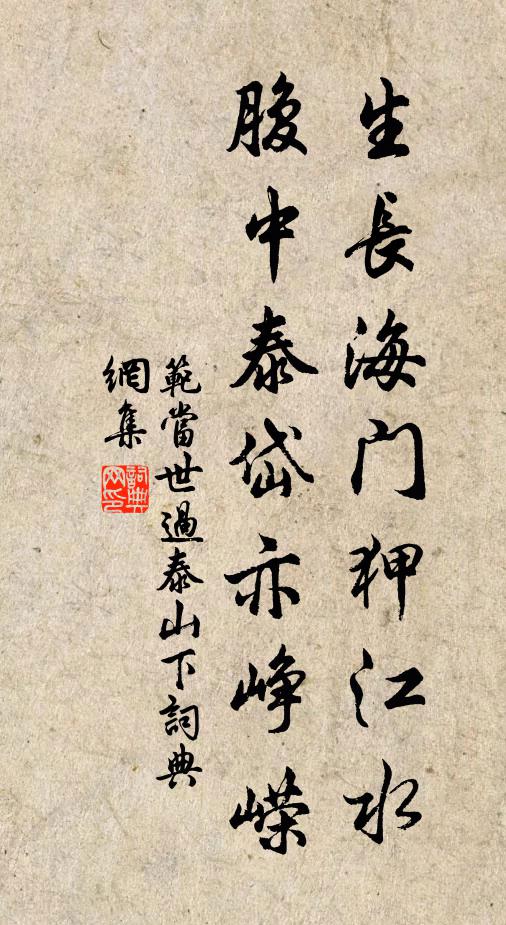 生長海門狎江水
腹中泰岱亦崢嶸
範當世過泰山下詞典
網集
詞典
网印